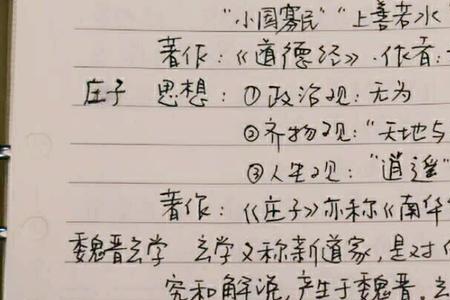 "小国寡民""上善若水
著作:《道德经》.作者:
庄子 思想:①政治观:无为
②齐物观:"天地与
③人生观:"逍遥"
著作:《庄子》亦称《南华
魏晋玄学 玄学又称新道家,是对《
究和解说,产生于魏晋,玄